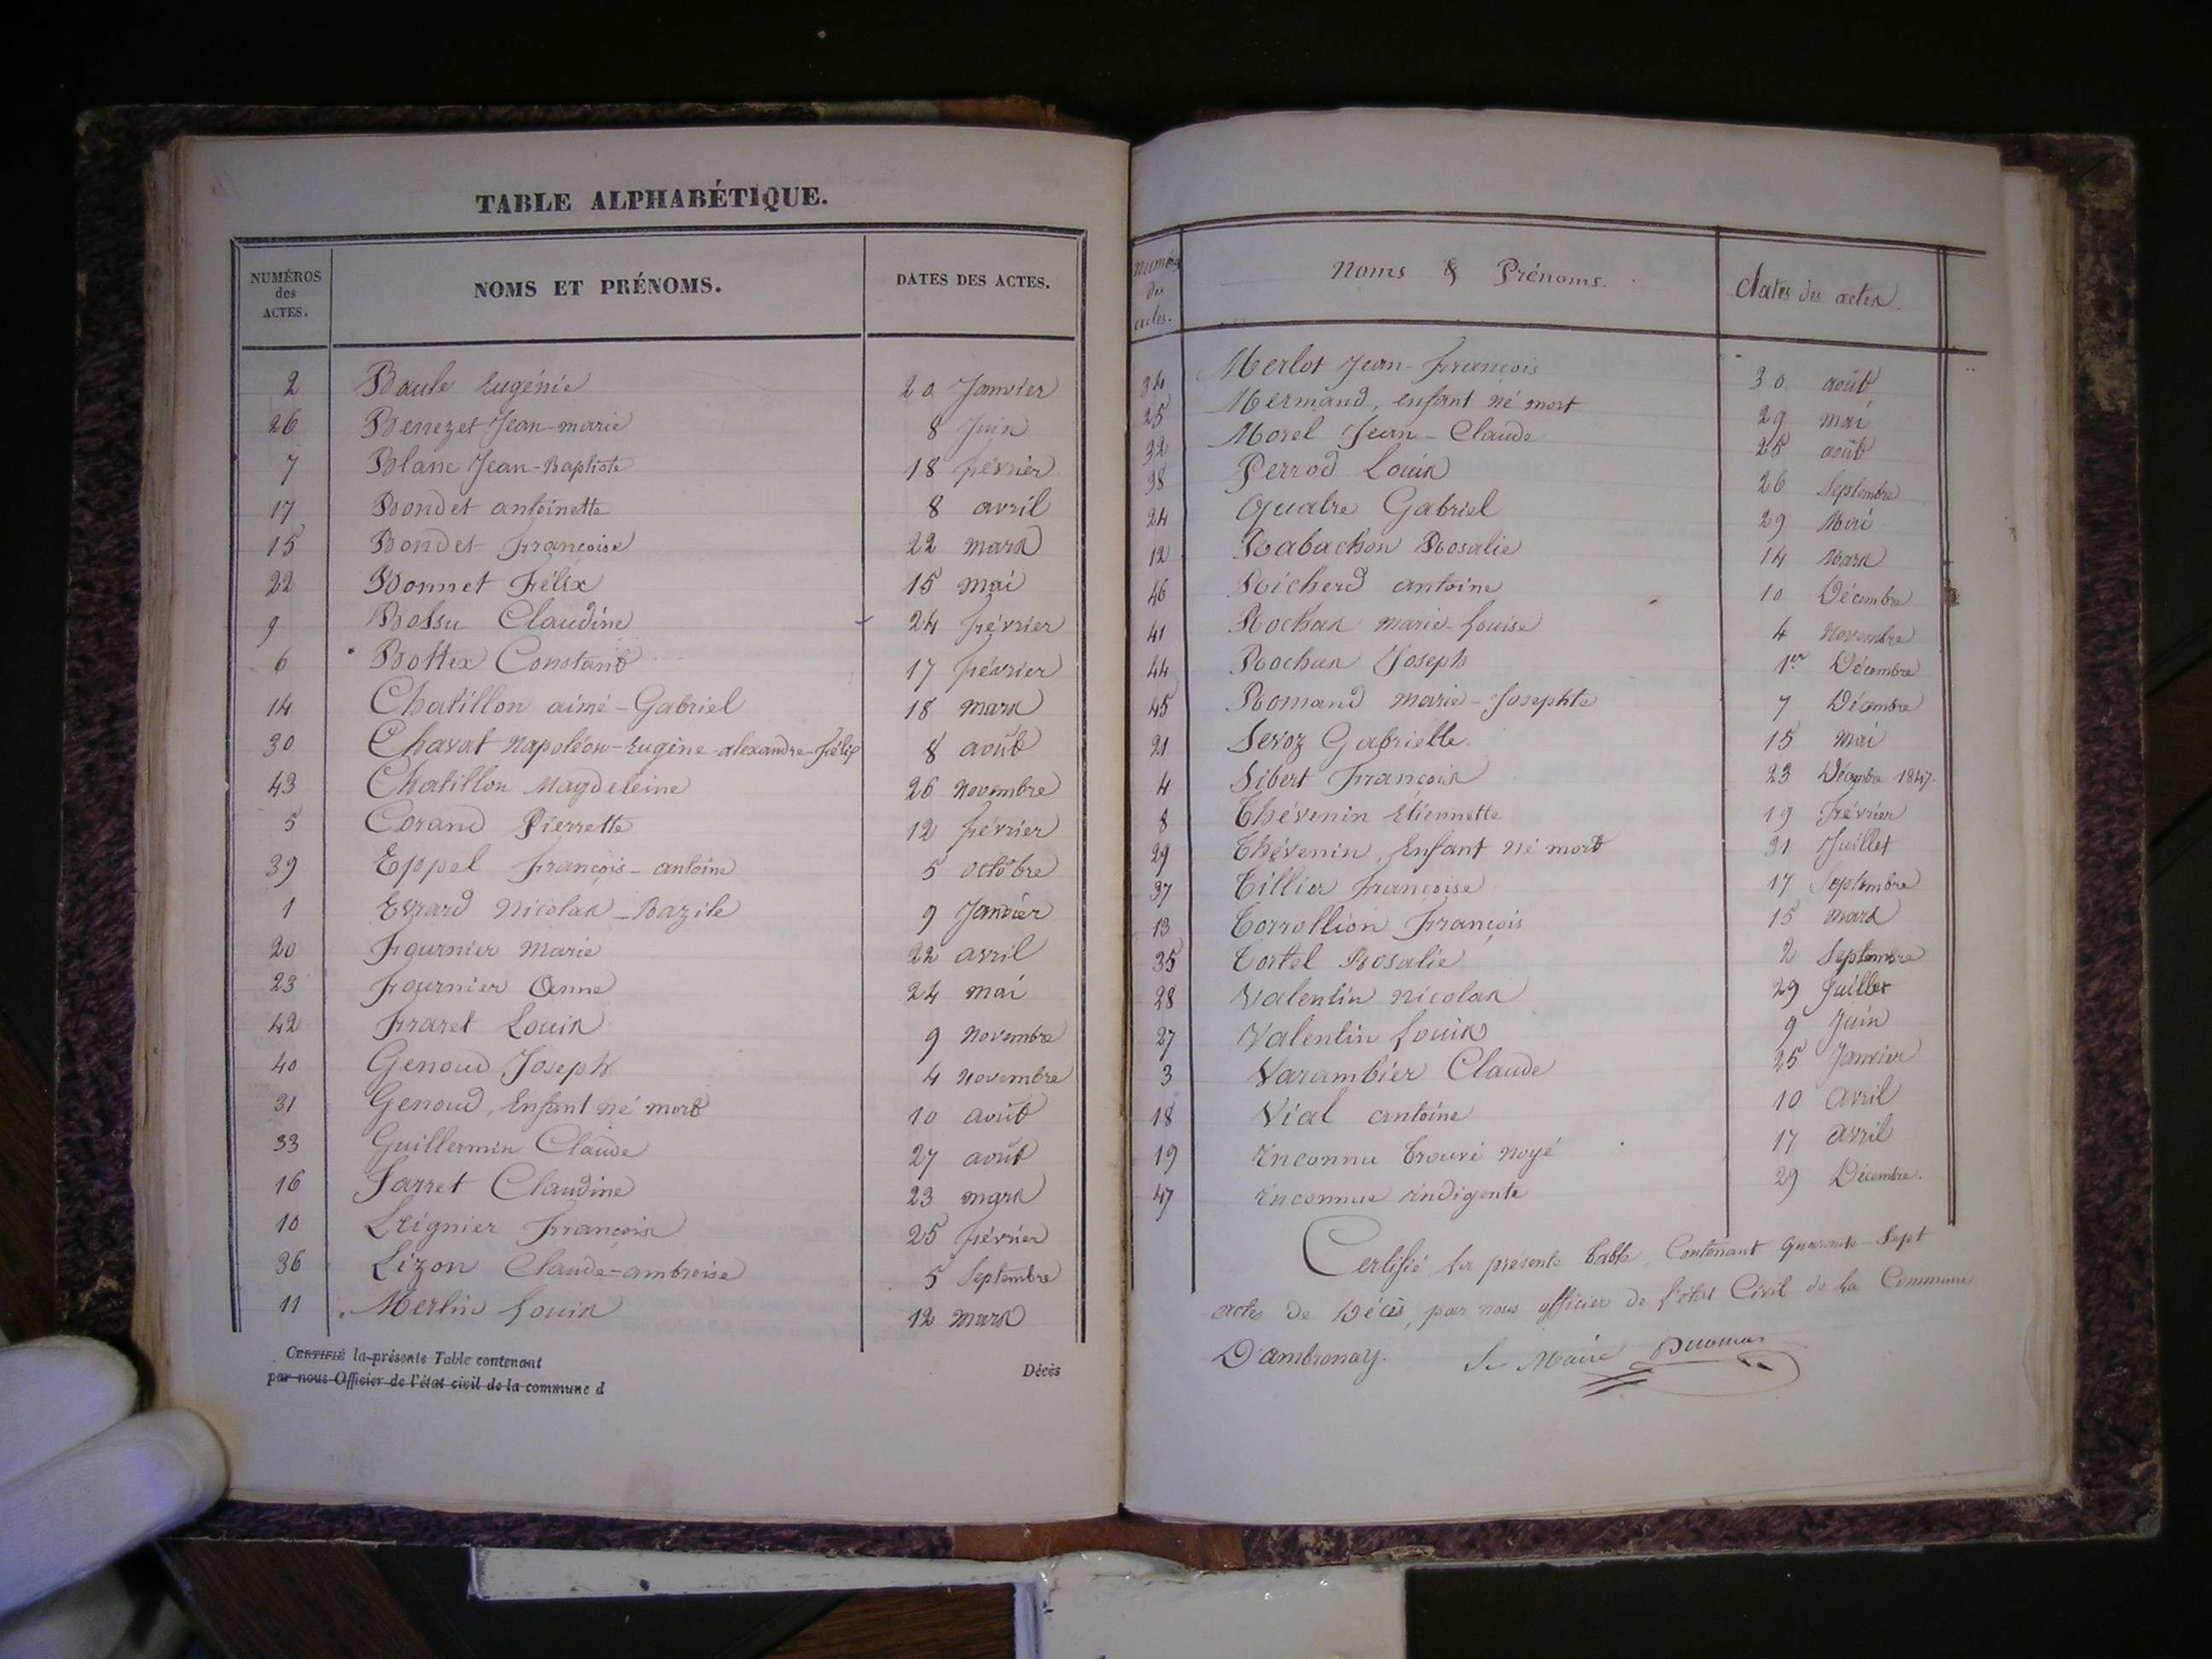 TABLE ALPHABÉTIQUE.
NUMÉROS des ACTES. NOMS ET PRÉNOMS. DATES DES ACTES.
2 Baule Eugénie 20 Janvier
26 Benezet Jean-marie 8 Juin
7 Blanc Jean-Baptiste 18 février
17 Bondet antoinette 8 avril
15 Bondet françoise 22 mars
22 Bonnet Félix 15 mai
9 Bossu Claudine 24 février
6 Bottex Constant 17 février
14 Chatillon aimé-Gabriel 18 mars
30 Chavat Napoléon-Eugène-alexandre-Félix 8 août
43 Chatillon Magdeleine 26 Novembre
5 Corand Pierrette 12 février
39 Eppel françois-antoine 5 octobre
1 Evrard Nicolas-Bazile 9 Janvier
20 Fournier Marie 22 avril
23 fournier Anne 24 mai
42 Louis 9 Novembre
40 Genoud Joseph 4 Novembre
31 Genoud, Enfant né mort 10 août
33 Guillermin Claude 27 août
16 Jarret Claudine 23 mars
10 François 25 février
36 Lizon Claude-ambroise 5 Septembre
11 Merlin Louis 12 mars
CERTIFIÉ la présente Table contenant Décès
par nous Officier de l'état civil de la commune d
Numéros des actes. Noms & Prénoms. dates des actes
34 Merlot Jean-François 30 août
25 Mermand, enfant né mort 29 mai
32 Morel Jean-Claude 25 août
38 Perrod Louis 26 Septembre
24 Quatre Gabriel 29 Mai
12 Rabachon Rosalie 14 Mars
46 Richerd antoine 10 Décembre
41 Rochas marie-Louise 4 Novembre
44 Rochas Joseph 1er Décembre
45 Romand Marie-Josephte 7 Décembre
21 Servoz Gabrielle 15 Mai
4 Sibert François 23 Décembre 1847.
8 Thévenin Etiennette 19 Février
29 Thévenin, Enfant né mort 31 Juillet
37 Tillier françoise 17 Septembre
13 Torrollion François 15 mars
35 Tortel Rosalie 2 Septembre
28 Valentin Nicolas 29 Juillet
27 Valentin Louis 9 Juin
3 Varambier Claude 25 Janvier
18 Vial antoine 10 Avril
19 Inconnu trouvé noyé 17 avril
47 Inconnue indigente 29 Décembre.
Certifié la présente table, Contenant Quarante-Sept
actes de Décès, par nous officier de l'état Civil de la Commune
D'ambronay. Le Maire